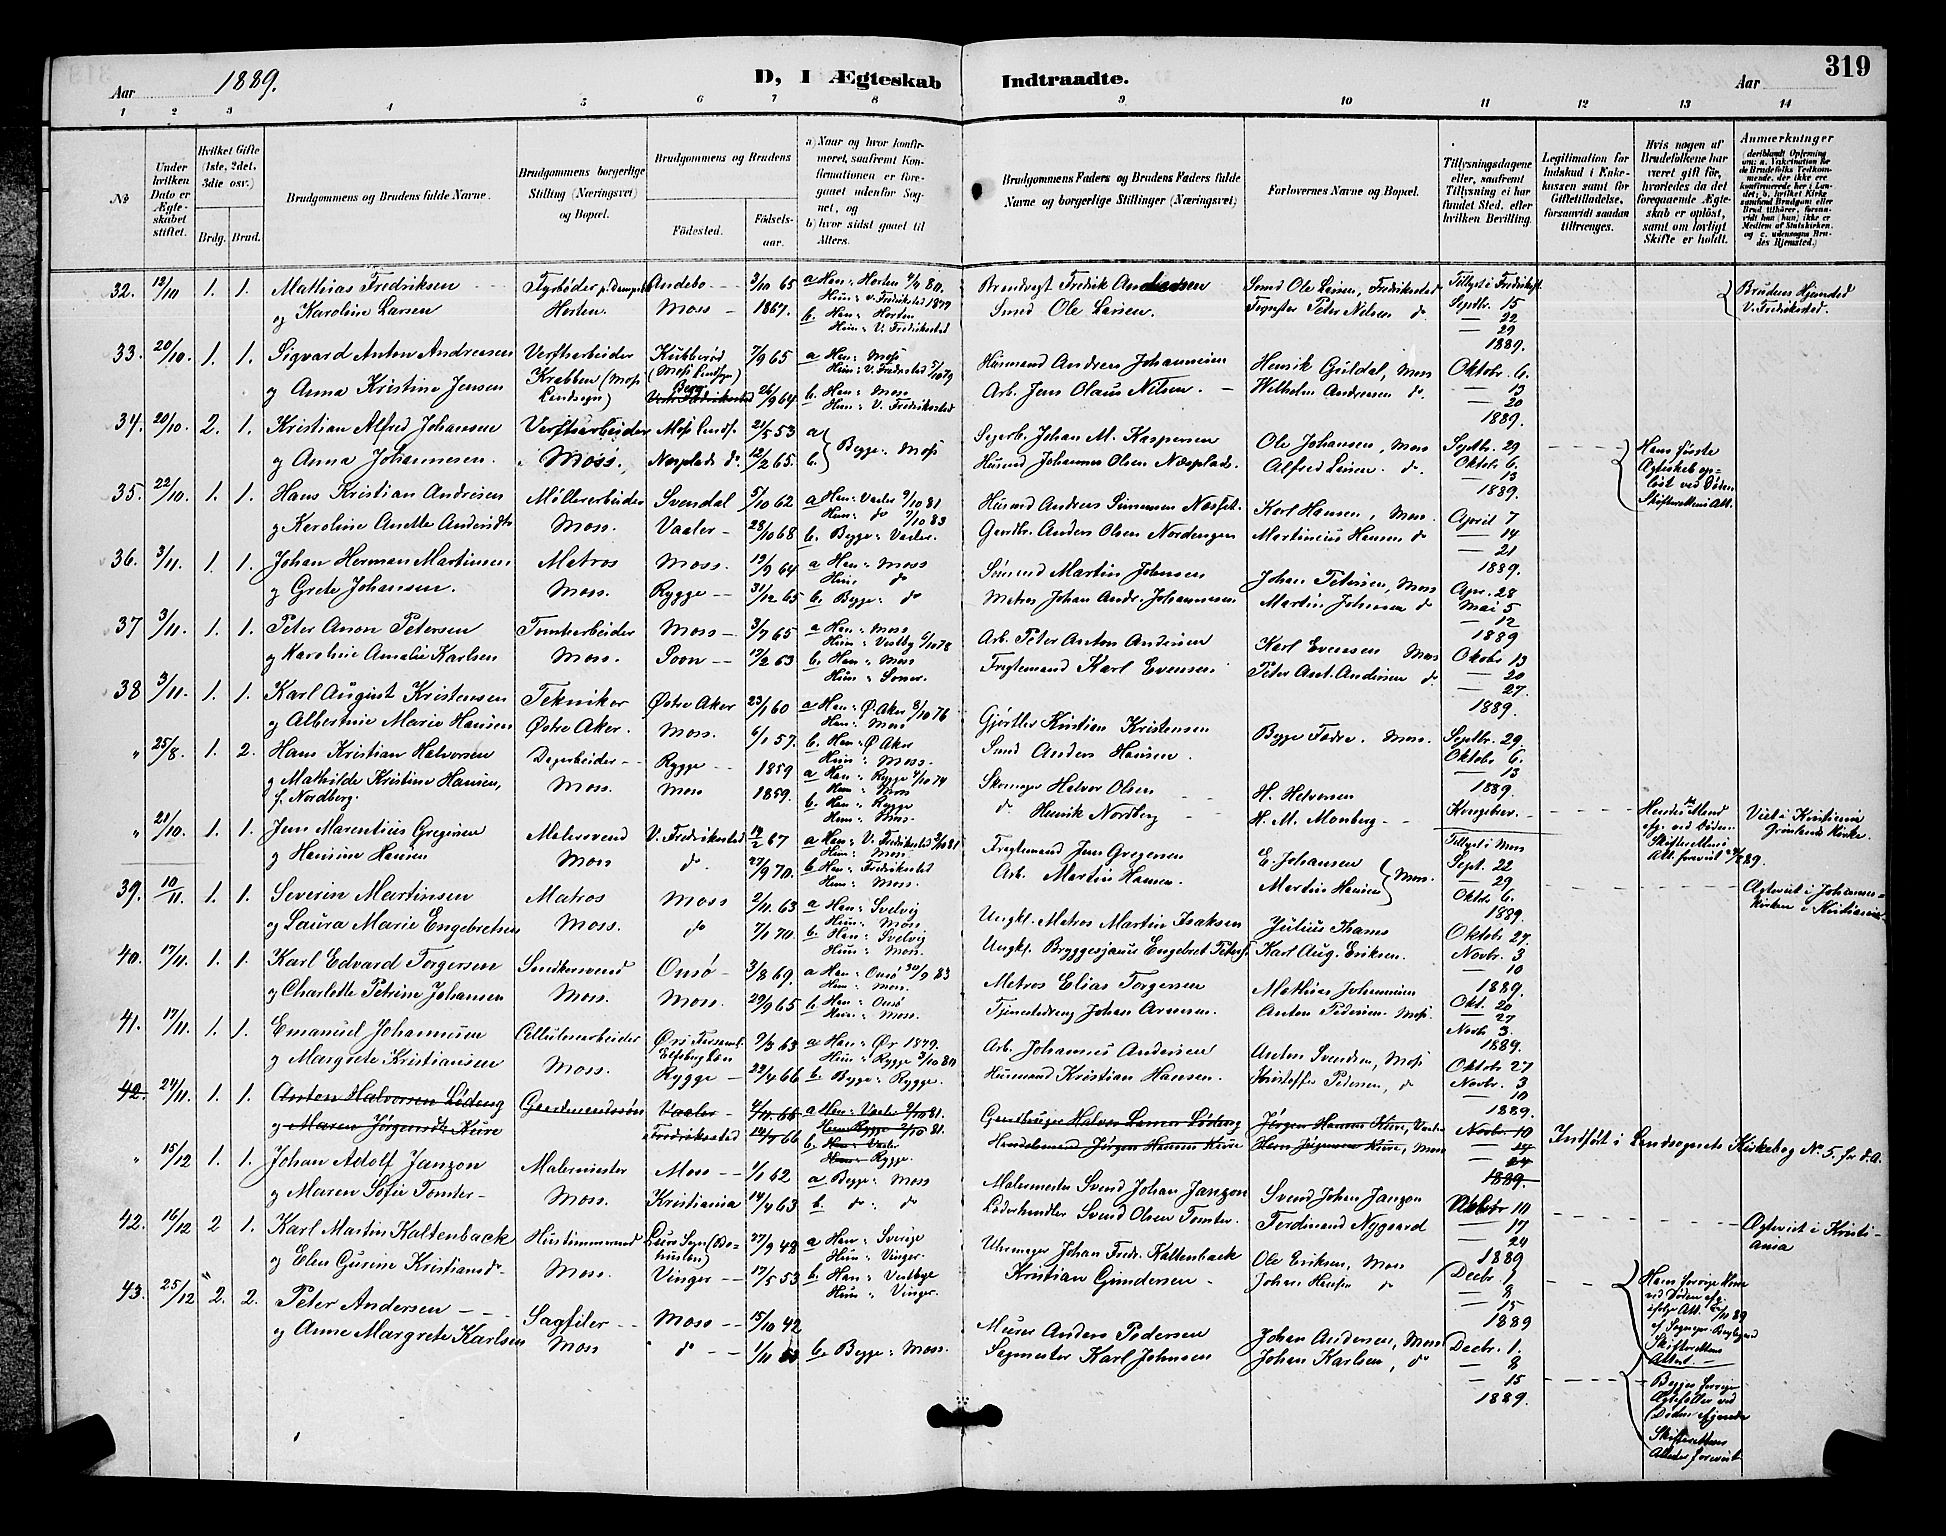 Aar 1889.
D, I Ægteskab Indtraadte.
Aar
319
1 2 3 4 5 6 7 8 9 10 11 12 13 14
№
Under hvilken Dato er Ægteskabet stiftet.
Hvilket Gifte (1ste, 2det, 3die osv.)
Brdg. Brud.
Brudgommens og Brudens fulde Navne.
Brudgommens borgerlige Stilling (Næringsvei) og Bopæl.
Brudgommens og Brudens
Fødested.
Fødselsaar.
a) Naar og hvor konfirmeret, saafremt Konfirmationen er foregaaet udenfor Sognet, og
b) hvor sidst gaaet til Alters.
Brudgommens Faders og Brudens Faders fulde Navne og borgerlige Stillinger (Næringsvei)
Forlovernes Navne og Bopæl.
Tillysningsdagene eller, saafremt Tillysning ei har fundet Sted, efter hvilken Bevilling.
Legitimation for Indskud i Enkekassen samt for Giftetilladelse, forsaavidt saadan tiltrænges.
Hvis nogen af Brudefolkene har været gift før, hvorledes da det foregaaende Ægteskab er opløst, samt om lovligt Skifte er holdt.
Anmærkninger
32. 12/10 1. 1. Mathias Fredriksen Fyrbøder Andebo 3/10 65 a Han: Horten 80. Brandvagt Fredrik Andersen Smed Ole Larsen, Fredrikstad Brudens Hjemsted
og Karoline Larsen Horten. Moss 1867. Hun: V. Fredrikstad 1879 Smed Ole Larsen. Peter Nilsen do Septbr. 15 V. Fredrikstad.
b. Han: Horten — 22
Hun: V. Fredrikstad — 29
1889.
33. 20/10. 1. 1. Sigvard Anton Andreasen Verftarbeider Kubberød 7/9 65 a Han: Moss Husmand Andreas Johannesen Henrik Guldal, Moss Oktobr. 6.
og Anna Kristine Jensen Krabben (Moss Landsogn) Vestre Fredrikstad 26/9 64 b. Han: Moss Arb. Jens Olaus Nilsen. Wilhelm Andresen do. — 13
Hun: V. Fredrikstad — 20
1889.
34. 20/10. 2. 1. Kristian Alfred Johansen Verftarbeider Moss Lands. 21/5 53 a Begge: Moss Johan M. Kaspersen Ole Johansen, Moss Septbr. 29 Hans første
og Anna Johannesen. Moss. Nesplads do. 12/2 65. b. Husmd Johannes Olsen Nesplads. Alfred Larsen. do. Oktobr 6. Ægteskab opløst ved Døden
— 13
1889.
35. 22/10. 1. 1. Hans Kristian Andresen Møllerarbeider Svendal 5/10 62 a Han: Vaaler 81 Husmd Andreas Karl Hansen, Moss. April 7
og Karoline Anette Andersdtr Moss. Vaaler 28/10 68 Hun: do 83 Gaardbr. Anders Olsen Nordengen Martinius Hansen do — 14
b. Begge: Vaaler. — 21
1889.
36. 3/11. 1. 1. Johan Herman Martinsen Matros Moss. 13/9 64 a Han: Moss Sømand Martin Johnsen Johan Petersen, Moss Apr. 28
og Grete Johansen. Moss. Rygge 31/12 65 Hun do Matros Johan Andr. Johannesen Martin Johnsen do Mai 5
b. Begge: do — 12
1889
37 3/11. 1. 1. Peter Anton Petersen Tomtearbeider Moss 3/7 65 a Han: Moss Arb. Peter Anton Andersen Karl Evensen Moss Oktobr 13
og Karoline Amalie Karlsen Moss. Soon 17/2 63 Hun: Vestby 78 Fragtemand Karl Evensen Peter Ant. Andersen do — 20
b. Han: Moss — 27.
1889.
38 3/11. 1. 1. Karl August Kristensen Tekniker Østre Aker 23/1 60 a Han: Ø. Aker 8/10 76 Gjørtler Kristian Kristensen Begge Fædre. Moss. Septbr. 29.
og Albertine Marie Hansen Østre Aker. Moss. 6/1 57. Hun: Moss Smed Anders Hansen. Oktobr 6.
b. Han: Ø Aker — 13
Hun: Moss. 1889.
" 25/8. 1. 2. Hans Kristian Halvorsen Dagarbeider Rygge 1859 a Han: Rygge 74 Skomager Halvor Olsen H. Halvorsen Kongebrev.
og Mathilde Kristine Hansen, Moss. Moss 1859. Hun: Moss do Henrik Nordberg H. M. Monberg Viet i Kristiania
f. Nordberg. b. Han: Rygge Grønlands Kirke.
Hun: Moss.
" 21/10. 1. 1. Jens Marentius Gregersen Malersvend V. Fredrikstad 19/2 67 a Han: V. Fredrikstad 81 Fragtemand Jens Gregersen E. Johansen Tillyst i Moss
og Hansine Hansen Moss do. 27/9 70. Hun: Moss Arb. Martin Hansen. Martin Hansen Moss. Sept. 22
b. Han: Fredrikstad — 29
Hun: Moss. Oktbr 6.
1889.
39. 10/11 1. 1. Severin Martinsen Matros Moss 2/11 63 a Han: Svelvig Ungk. Matros Martin Isaksen Julius Thams Oktobr 27
og Laura Marie Engebretsen Moss. do 7/1 70. Hun: Moss Ungk. Bryggesjauer Engebret Peters. Karl Aug. Eriksen. Novbr. 3
b. Han: Svelvig — 10
Hun: Moss. 1889.
40. 17/11. 1. 1. Karl Edvard Torgersen Smedsvend Onsø 3/8 69. a Han: Onsø 30/9 83 Matros Elias Torgersen Mathias Johannesen Okt. 20
og Charlotte Petrine Johansen Moss. Moss. 29/9 65 Hun: Moss. Johan Arnesen. Anton Pedersen. Moss. — 27
b. Han: Onsø Novbr 3.
Hun: Moss. 1889.
41. 17/11. 1. 1. Emanuel Johannesen Cellulosearbeider 7/3 63 a Han: Ør 1879. Arb. Johannes Andersen Anton Svendsen, Moss Oktobr 27
og Margrete Kristiansen Moss. Rygge 22/4 66 Hun: Rygge 3/10 80 Husmand Kristian Hansen. Kristoffer Pedersen, do Novbr. 3
b. Begge: Rygge. — 10
1889.
42. 24/11. 1. 1. Anton Halvorsen Løding Gaardmandssøn Vaaler 4/11 66 a Han: Vaaler 81. Gaardbruger Halvor Larsen Løding Jørgen Hansen Kure, Vaaler Novbr 10 Indført i Landsognets Kirkebog No 5. for d. A.
og Maren Jørgensdtr Kure Fredrikstad 14/7 66 Hun: Rygge 81. Handelsmand Jørgen Hansen Kure Kure, Moss — 17
b. Han: Vaaler — 24
Hun: Rygge. 1889.
" 15/12 1. 1. Johan Adolf Janzon Malermester Moss 1/1 62 a Begge: Moss Malermester Svend Johan Janzon Svend Johan Janzon 10 Ægteviet i Kristiania
og Maren Sofie Tomter Moss. Kristiania 14/4 63 b. do: do Læderhandler Svend Olsen Tomter. Ferdinand Nygaard — 17
— 24
1889
42. 16/12 2 1. Karl Martin Kaltenback Hustømmermand 27/9 48 a Han: Sverige Uhrmager Johan Fredr. Kaltenback Ole Eriksen, Moss Decbr. 1
og Elen Gurine Kristiansdtr. Moss. Vinger 17/5 53 Hun: Vinger. Kristian Gundersen Johan Hansen do — 8
b. Han: Vestby — 15
Hun: Vinger. 1889
43. 25/12 2. 2. Peter Andersen Sagfiler Moss 15/10 42 Murer Anders Pedersen Johan Andersen, Moss Decbr. 1.
og Anne Margrete Karlsen Moss do 1/11 b. Begge: Moss. Sagmester Karl Johnsen Johan Karlsen, do — 8
— 15
1889.
Begges forrige
Ægtefæller ved
Døden afgaaede
Skifterettens